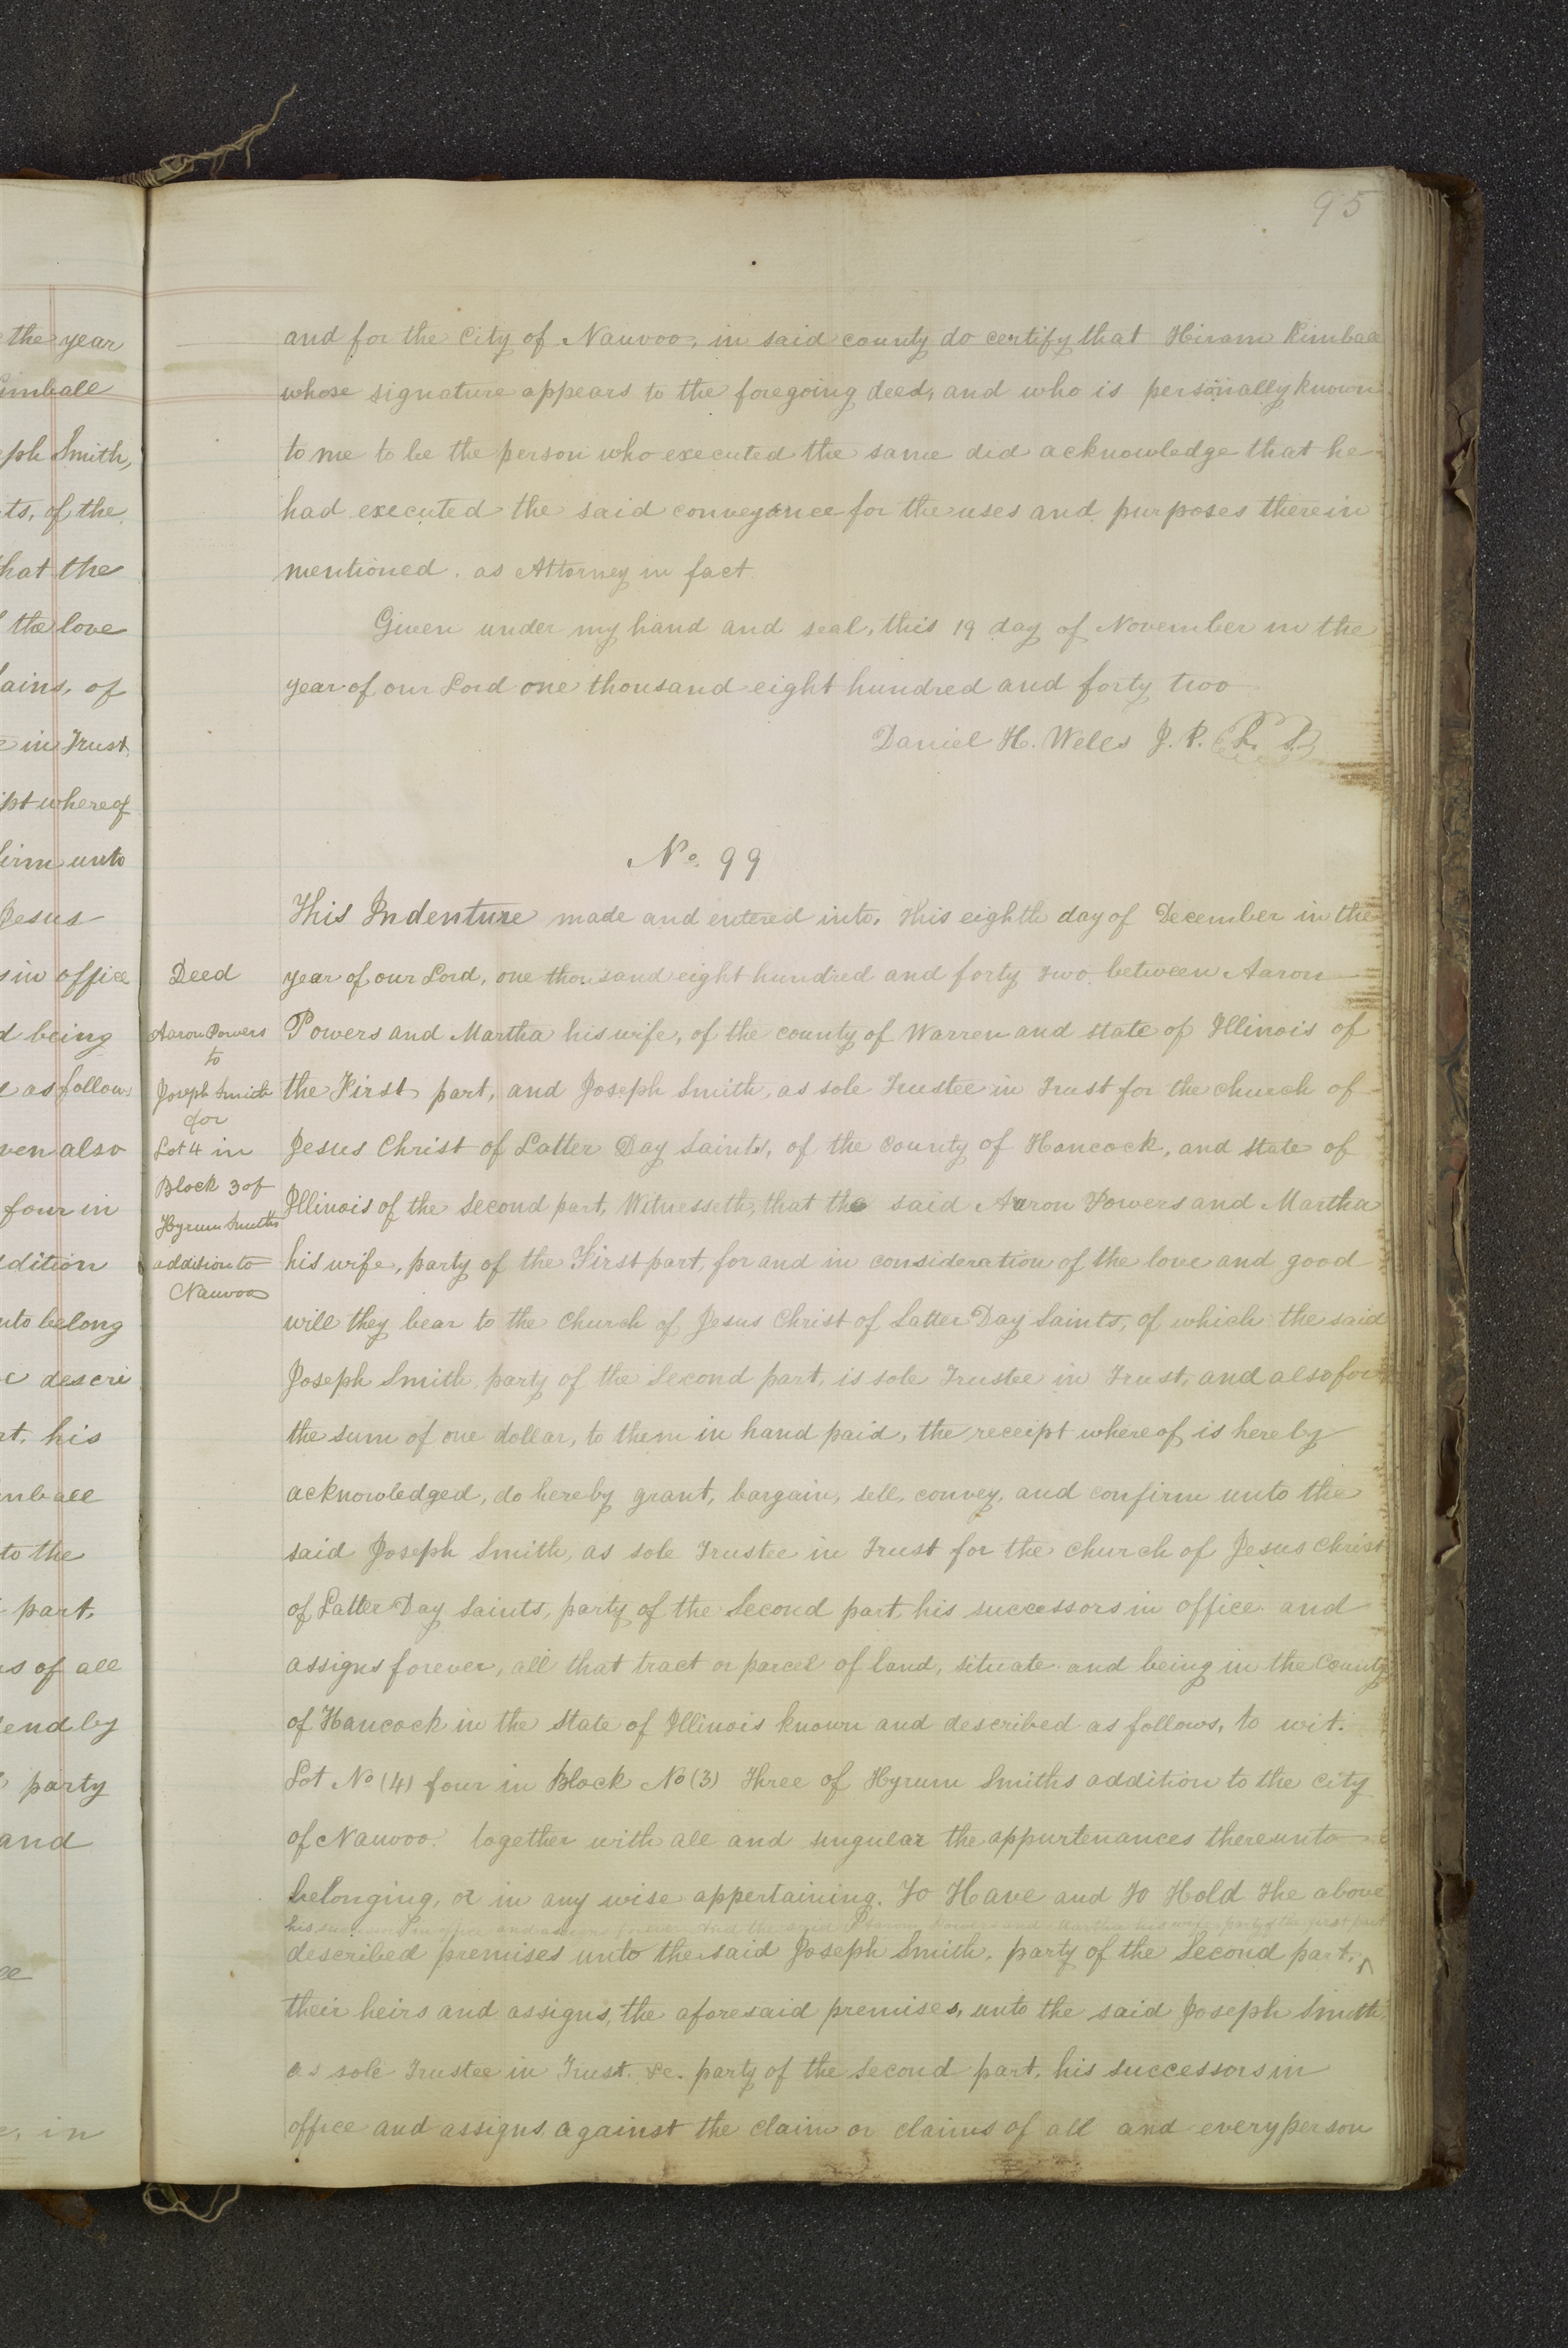 95
the year
imball
eph Smith,
ts, of the
hat the
the love
ains, of
e in Trust
ipt whereof
firm unto
Jesus
s in office
d being
e as follow
ven also
four in
ddition
nto belong
e descri
rt, his
mball
to the
part,
rs of all
fend by
party
and
e, in
and for the City of Nauvoo, in said county do certify that Hiram Kimball
whose signature appears to the foregoing deed, and who is personally known
to me to be the person who executed the same did acknowledge that he
had executed the said conveyance for the uses and purposes therein
mentioned. as Attorney in fact
Given under my hand and seal, this 19 day of November in the
year of our Lord one thousand eight hundred and forty two
Daniel H. Wells J. P. L. S.
No. 99
Deed
Aaron Powers
to
Joseph Smith
for
Lot 4 in
Block 3 of
Hyrum Smith's
addition to
Nauvoo
This Indenture made and entered into, this eighth day of December in the
year of our Lord, one thousand eight hundred and forty two between Aaron
Powers and Martha his wife, of the county of Warren and state of Illinois of
the First part, and Joseph Smith, as sole Trustee in Trust for the church of
Jesus Christ of Latter Day Saints, of the County of Hancock, and State of
Illinois of the Second part, Witnesseth, that the said Aaron Powers and Martha
his wife, party of the First part, for and in consideration of the love and good
will they bear to the Church of Jesus Christ of Latter Day Saints, of which the said
Joseph Smith, party of the Second part, is sole Trustee in Trust, and also for
the sum of one dollar, to them in hand paid, the receipt whereof is hereby
acknowledged, do hereby grant, bargain, sell, convey, and confirm unto the
said Joseph Smith, as sole Trustee in Trust for the church of Jesus Christ
of Latter Day Saints, party of the Second part, his successors in office and
assigns forever, all that tract or parcel of land, situate and being in the County
of Hancock in the State of Illinois known and described as follows, to wit.
Lot No (4) four in Block No (3) Three of Hyrum Smiths addition to the City
of Nauvoo. together with all and singular the appurtenances thereunto
belonging, or in any wise appertaining. To Have and To Hold The above
his successors in office and assigns forever And the said Aaron Powers and Martha his wife party of the first part
described premises unto the said Joseph Smith, party of the Second part, ^
their heirs and assigns, the aforesaid premises, unto the said Joseph Smith
as sole Trustee in Trust. &c. party of the Second part, his successors in
office and assigns, against the claim or claims of all and every person